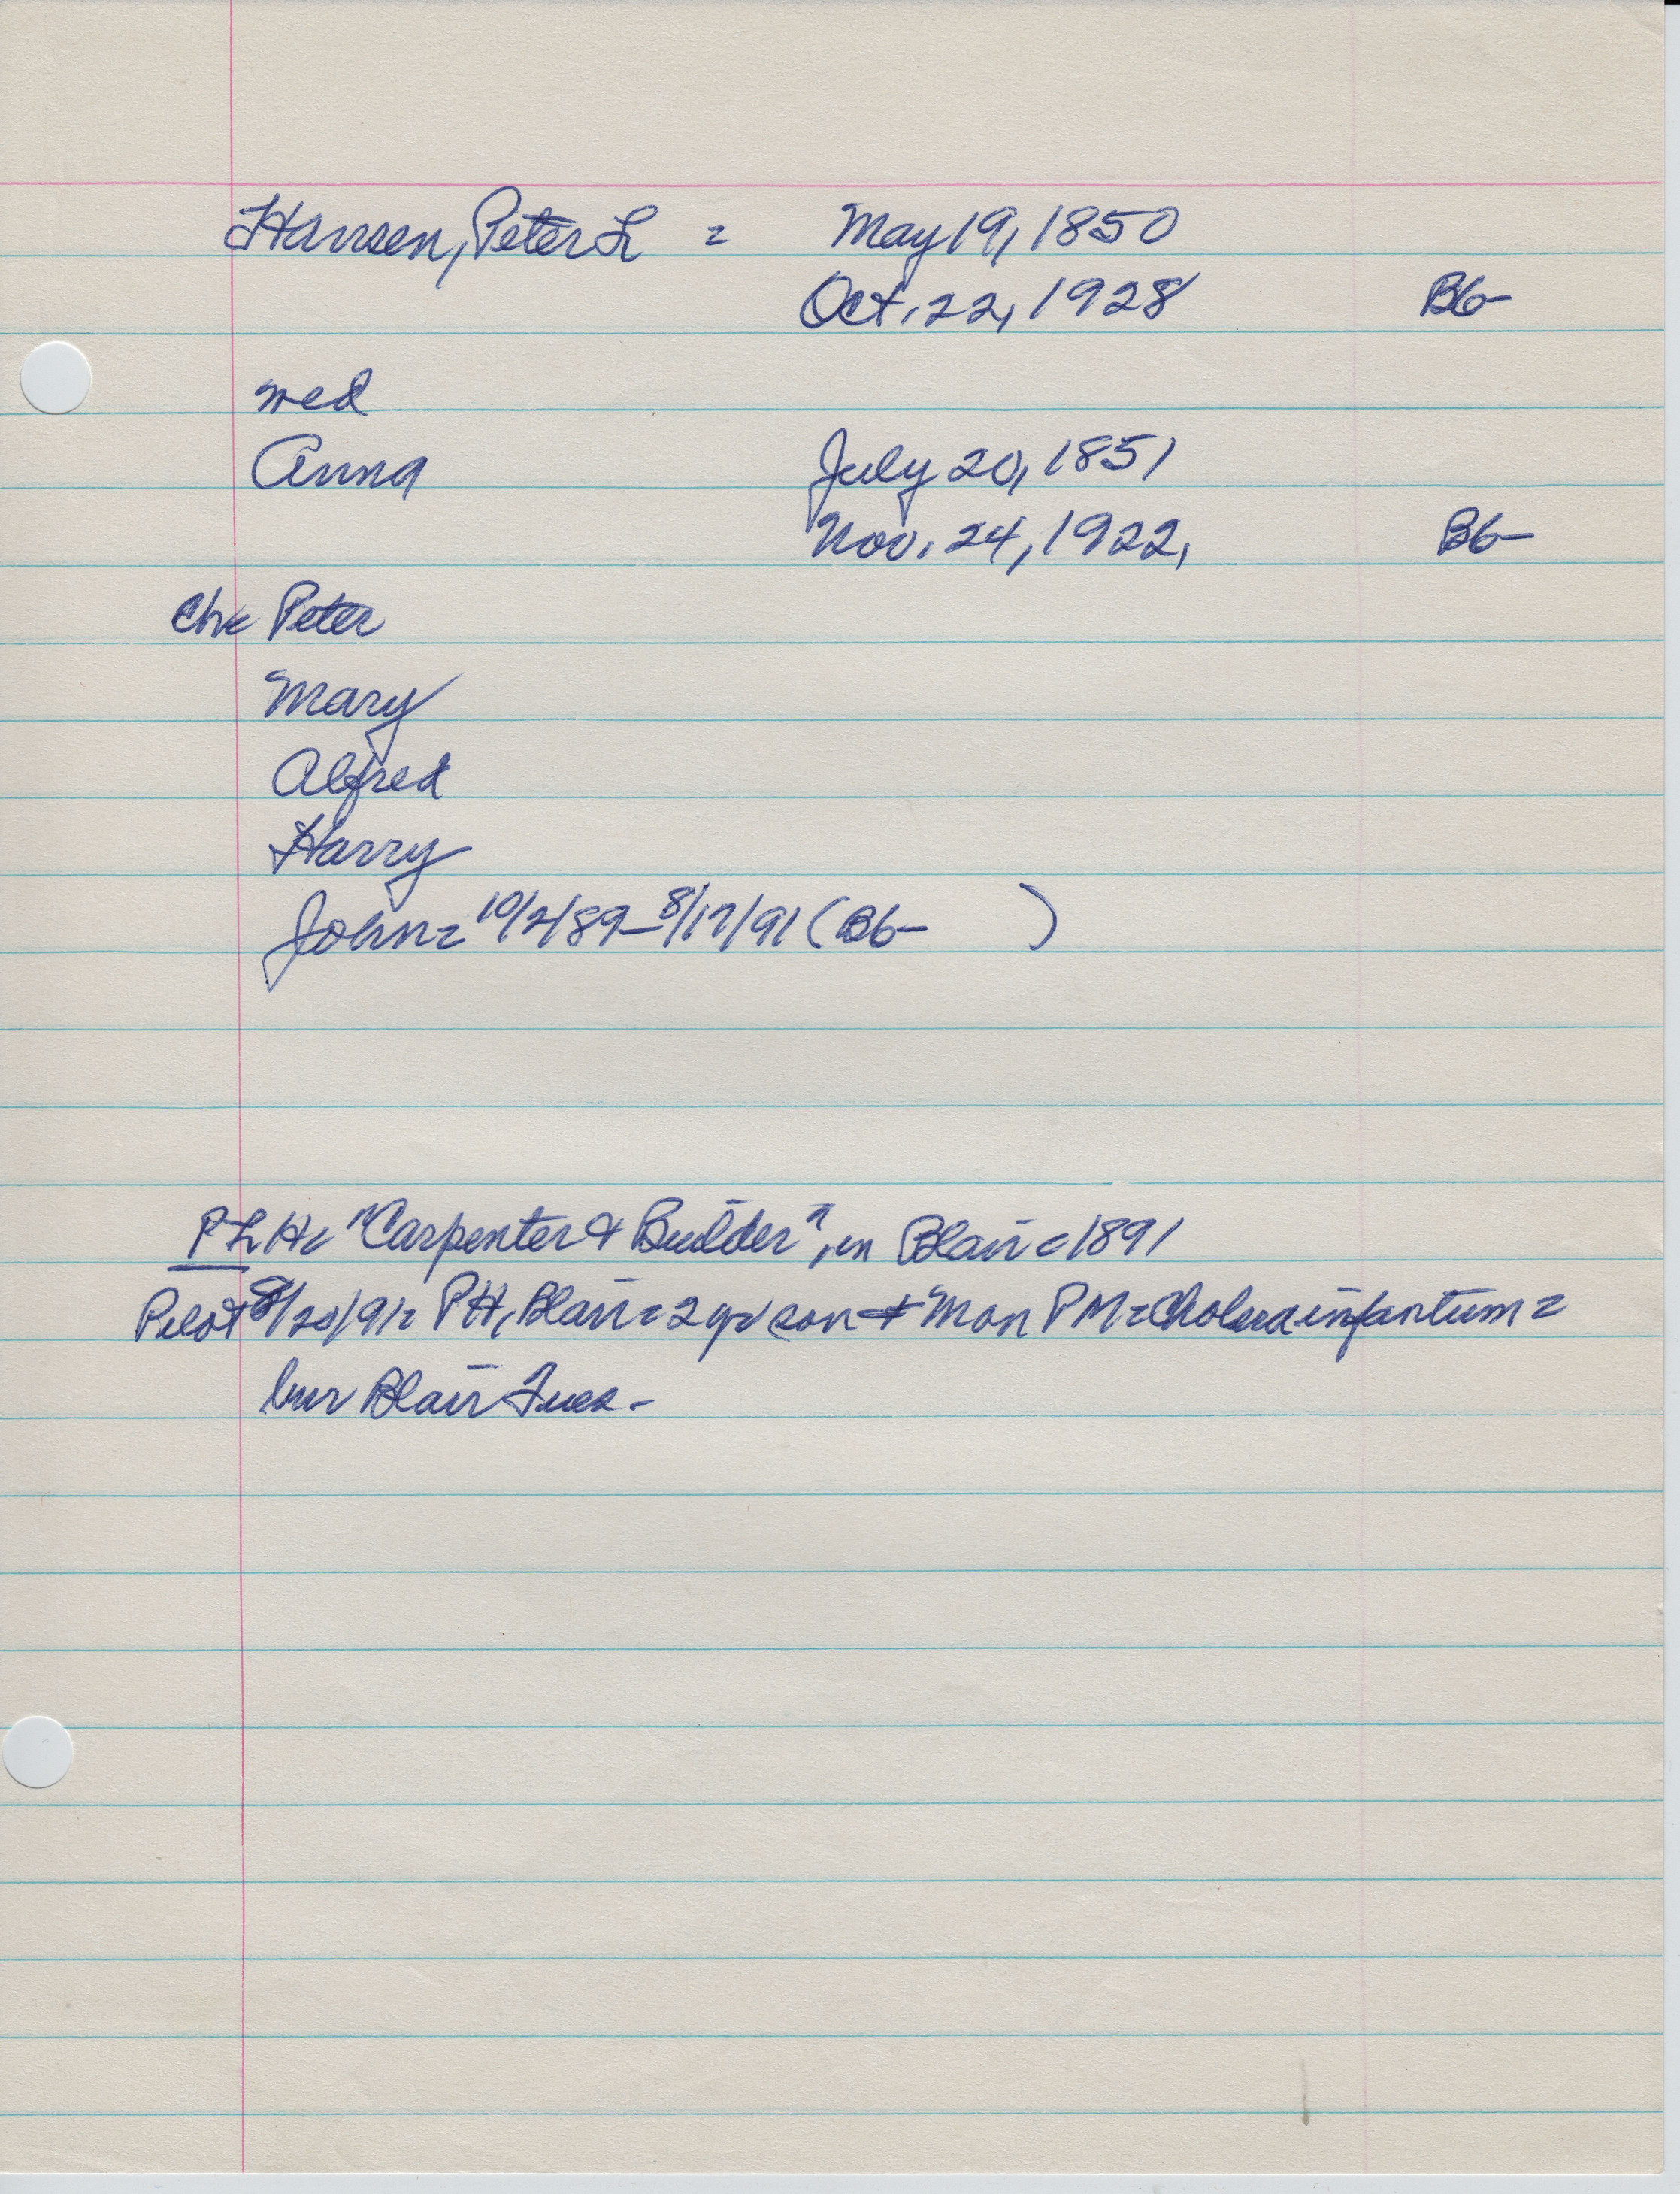 Hansen, Peter L = May 19, 1850
Oct. 22, 1928 B6-
wed
Anna July 20, 1851
Nov. 24, 1922, B6-
Ch= Peter
Mary
Alfred
Harry
John= 10/2/89-8/17/91 (B6- )
PLH= "Carpenter & Builder", in Blair = 1891
Pilot 8/20/91= PH, Blair = 2 yr son + Mon PM = Cholera infantum =
bur Blair Tues-